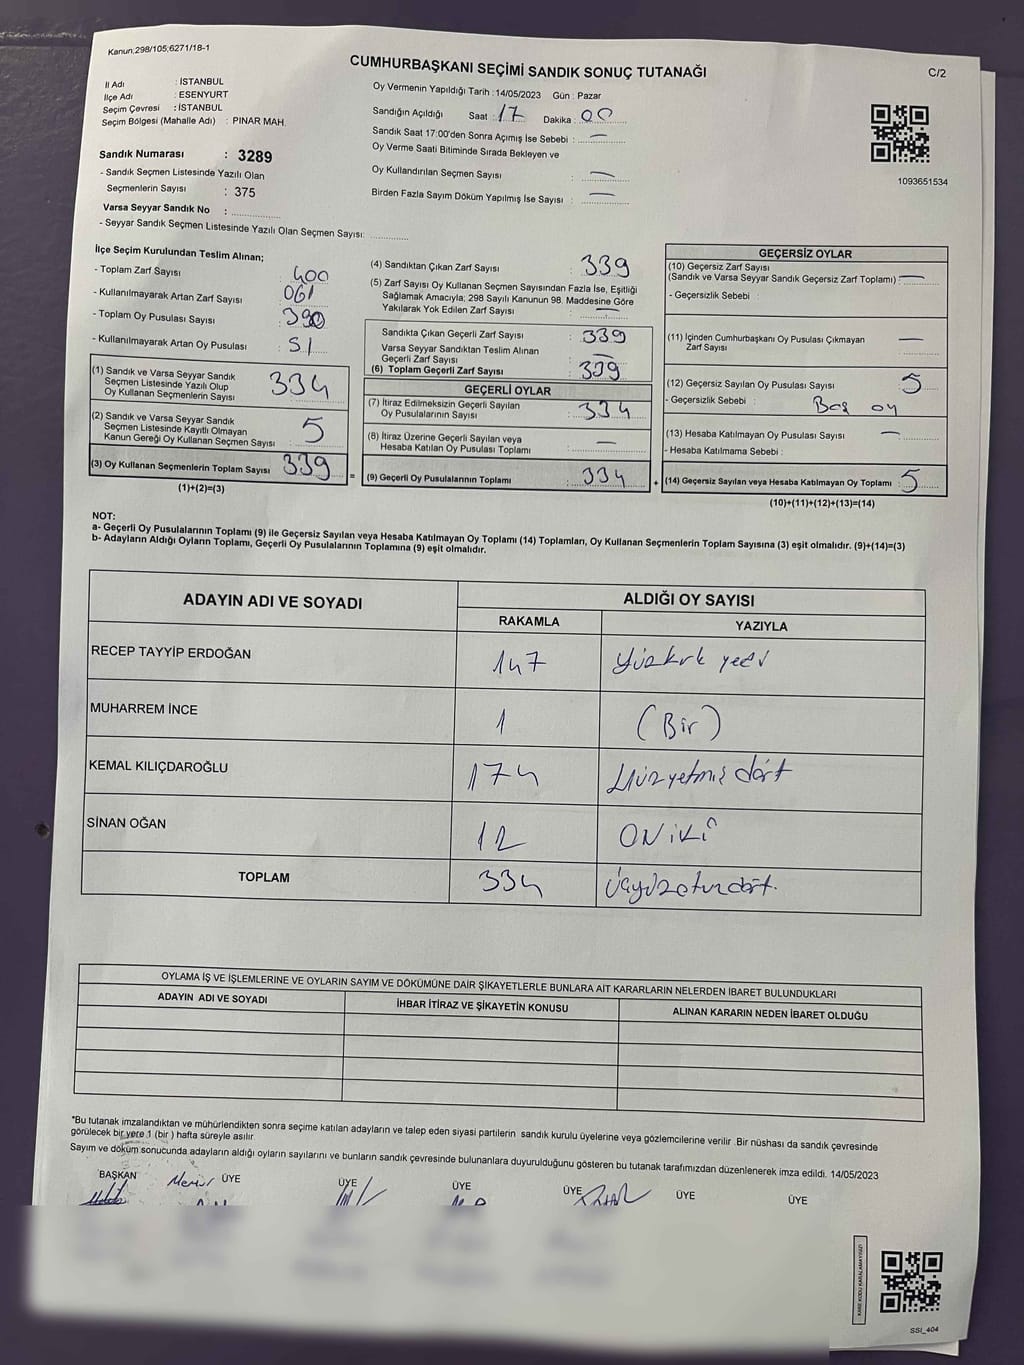 Kanun;298/105;6271/18-1
CUMHURBAŞKANI SEÇİMİ SANDIK SONUÇ TUTANAĞI
C/2
İl Adı : İSTANBUL
İlçe Adı : ESENYURT
Seçim Çevresi : İSTANBUL
Seçim Bölgesi (Mahalle Adı) : PINAR MAH.
Oy Vermenin Yapıldığı Tarih : 14/05/2023 Gün : Pazar
Sandığın Açıldığı Saat : 17 Dakika : 00
Sandık Saat 17:00'den Sonra Açımış İse Sebebi : —
Oy Verme Saati Bitiminde Sırada Bekleyen ve
Oy Kullandırılan Seçmen Sayısı : —
Birden Fazla Sayım Döküm Yapılmış İse Sayısı : —
1093651534
Sandık Numarası : 3289
- Sandık Seçmen Listesinde Yazılı Olan
Seçmenlerin Sayısı : 375
Varsa Seyyar Sandık No :
- Seyyar Sandık Seçmen Listesinde Yazılı Olan Seçmen Sayısı:
İlçe Seçim Kurulundan Teslim Alınan;
- Toplam Zarf Sayısı : 400
- Kullanılmayarak Artan Zarf Sayısı : 061
- Toplam Oy Pusulası Sayısı : 390
- Kullanılmayarak Artan Oy Pusulası : 51
(1) Sandık ve Varsa Seyyar Sandık
Seçmen Listesinde Yazılı Olup
Oy Kullanan Seçmenlerin Sayısı 334
(2) Sandık ve Varsa Seyyar Sandık
Seçmen Listesinde Kayıtlı Olmayan
Kanun Gereği Oy Kullanan Seçmen Sayısı 5
(3) Oy Kullanan Seçmenlerin Toplam Sayısı 339
(1)+(2)=(3)
(4) Sandıktan Çıkan Zarf Sayısı : 339
(5) Zarf Sayısı Oy Kullanan Seçmen Sayısından Fazla İse, Eşitliği
Sağlamak Amacıyla; 298 Sayılı Kanunun 98. Maddesine Göre
Yakılarak Yok Edilen Zarf Sayısı : —
Sandıkta Çıkan Geçerli Zarf Sayısı : 339
Varsa Seyyar Sandıktan Teslim Alınan
Geçerli Zarf Sayısı : —
(6) Toplam Geçerli Zarf Sayısı : 339
GEÇERLİ OYLAR
(7) İtiraz Edilmeksizin Geçerli Sayılan
Oy Pusulalarının Sayısı : 334
(8) İtiraz Üzerine Geçerli Sayılan veya
Hesaba Katılan Oy Pusulası Toplamı : —
= (9) Geçerli Oy Pusulalarının Toplamı : 334
GEÇERSİZ OYLAR
(10) Geçersiz Zarf Sayısı
(Sandık ve Varsa Seyyar Sandık Geçersiz Zarf Toplamı) : —
- Geçersizlik Sebebi :
(11) İçinden Cumhurbaşkanı Oy Pusulası Çıkmayan
Zarf Sayısı : —
(12) Geçersiz Sayılan Oy Pusulası Sayısı : 5
- Geçersizlik Sebebi : Boş oy
(13) Hesaba Katılmayan Oy Pusulası Sayısı : —
- Hesaba Katılmama Sebebi :
+ (14) Geçersiz Sayılan veya Hesaba Katılmayan Oy Toplamı : 5
(10)+(11)+(12)+(13)=(14)
NOT:
a- Geçerli Oy Pusulalarının Toplamı (9) ile Geçersiz Sayılan veya Hesaba Katılmayan Oy Toplamı (14) Toplamları, Oy Kullanan Seçmenlerin Toplam Sayısına (3) eşit olmalıdır. (9)+(14)=(3)
b- Adayların Aldığı Oyların Toplamı, Geçerli Oy Pusulalarının Toplamına (9) eşit olmalıdır.
ADAYIN ADI VE SOYADI
ALDIĞI OY SAYISI
RAKAMLA YAZIYLA
RECEP TAYYİP ERDOĞAN 147 Yüzkırk yedi
MUHARREM İNCE 1 (Bir)
KEMAL KILIÇDAROĞLU 174 Yüzyetmiş dört
SİNAN OĞAN 12 ONİKİ
TOPLAM 334 Üçyüzotuzdört.
OYLAMA İŞ VE İŞLEMLERİNE VE OYLARIN SAYIM VE DÖKÜMÜNE DAİR ŞİKAYETLERLE BUNLARA AİT KARARLARIN NELERDEN İBARET BULUNDUKLARI
ADAYIN ADI VE SOYADI İHBAR İTİRAZ VE ŞİKAYETİN KONUSU ALINAN KARARIN NEDEN İBARET OLDUĞU
*Bu tutanak imzalandıktan ve mühürlendikten sonra seçime katılan adayların ve talep eden siyasi partilerin sandık kurulu üyelerine veya gözlemcilerine verilir .Bir nüshası da sandık çevresinde
görülecek bir yere 1 (bir ) hafta süreyle asılır
Sayım ve döküm sonucunda adayların aldığı oyların sayılarını ve bunların sandık çevresinde bulunanlara duyurulduğunu gösteren bu tutanak tarafımızdan düzenlenerek imza edildi. 14/05/2023
BAŞKAN Memur ÜYE ÜYE ÜYE ÜYE ÜYE ÜYE
KARE KODU KARALAMAYINIZ!
SSI_404